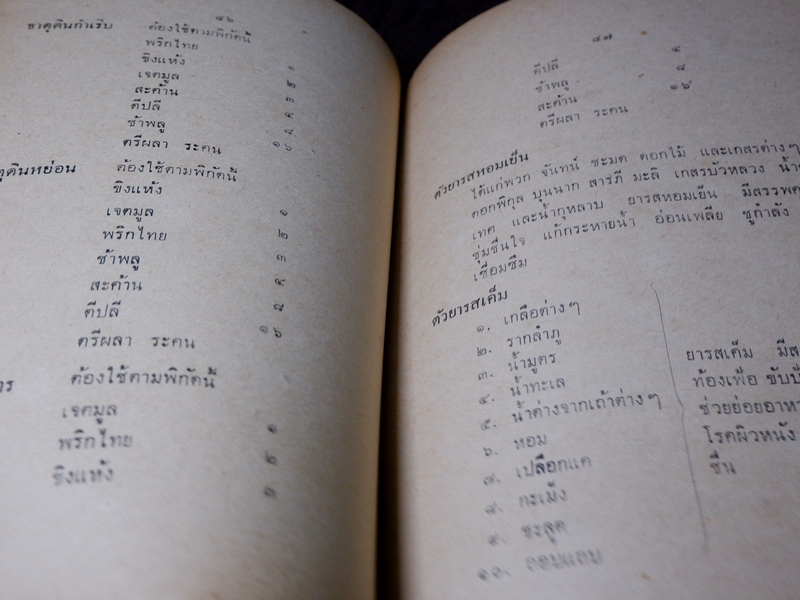 ๔๖
ธาตุดินกำเริบ ต้องใช้ตามพิกัดนี้
พริกไทย
ขิงแห้ง ๑
เจตมูล ๒
สะค้าน ๓
ดีปลี ๔
ช้าพลู ๘
ตรีผลา ระคน ๑๖
ตุดินหย่อน ต้องใช้ตามพิกัดนี้
ขิงแห้ง
เจตมูล ๑
พริกไทย ๒
ช้าพลู ๓
สะค้าน ๔
ดีปลี ๘
ตรีผลา ระคน ๑๖
าร ต้องใช้ตามพิกัดนี้
เจตมูล ๑
พริกไทย ๒
ขิงแห้ง ๓
๔๗
ดีปลี ๔
ช้าพลู ๘
สะค้าน ๑๖
ตรีผลา ระคน
ตัวยารสหอมเย็น
ได้แก่พวก จันทน์ ชะมด ดอกไม้ และเกสรต่างๆ
ดอกพิกุล บุนนาก สารภี มะลิ เกสรบัวหลวง น้ำ
เทศ และน้ำกุหลาบ ยารสหอมเย็น มีสรรพค
ชุ่มชื่นใจ แก้กระหายน้ำ อ่อนเพลีย ชูกำลัง
เซื่อมซึม
ตัวยารสเค็ม
๑. เกลือต่างๆ
๒. รากลำภู
๓. น้ำมูตร
๔. น้ำทะเล
๕. น้ำด่างจากเถ้าต่างๆ
๖. หอม
๗. เปลือกแค
๘. กะเม็ง
๙. ชะลูด
๑๐.
ยารสเค็ม มีส
ท้องเฟ้อ ขับปั
ช่วยย่อยอาหา
โรคผิวหนัง
ชื่น